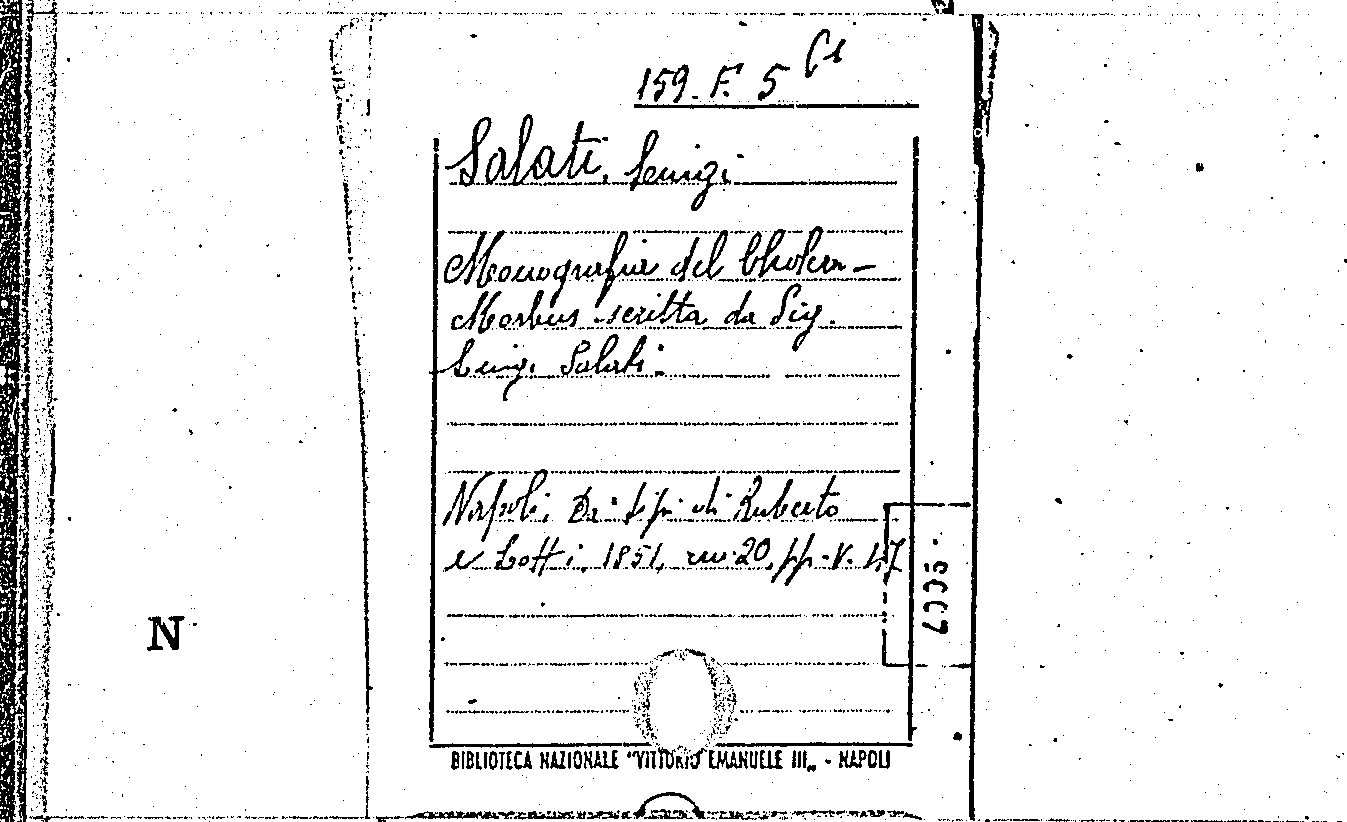 159. F. 5
Salati, Luigi
Monografia del Cholera-
Morbus scritta da Sig.
Luigi Salati.
Napoli, Da' tipi di Ruberto
e Lotti, 1851, in 20, pp. V. 47
N
BIBLIOTECA NAZIONALE "VITTORIO EMANUELE III„ - NAPOLI